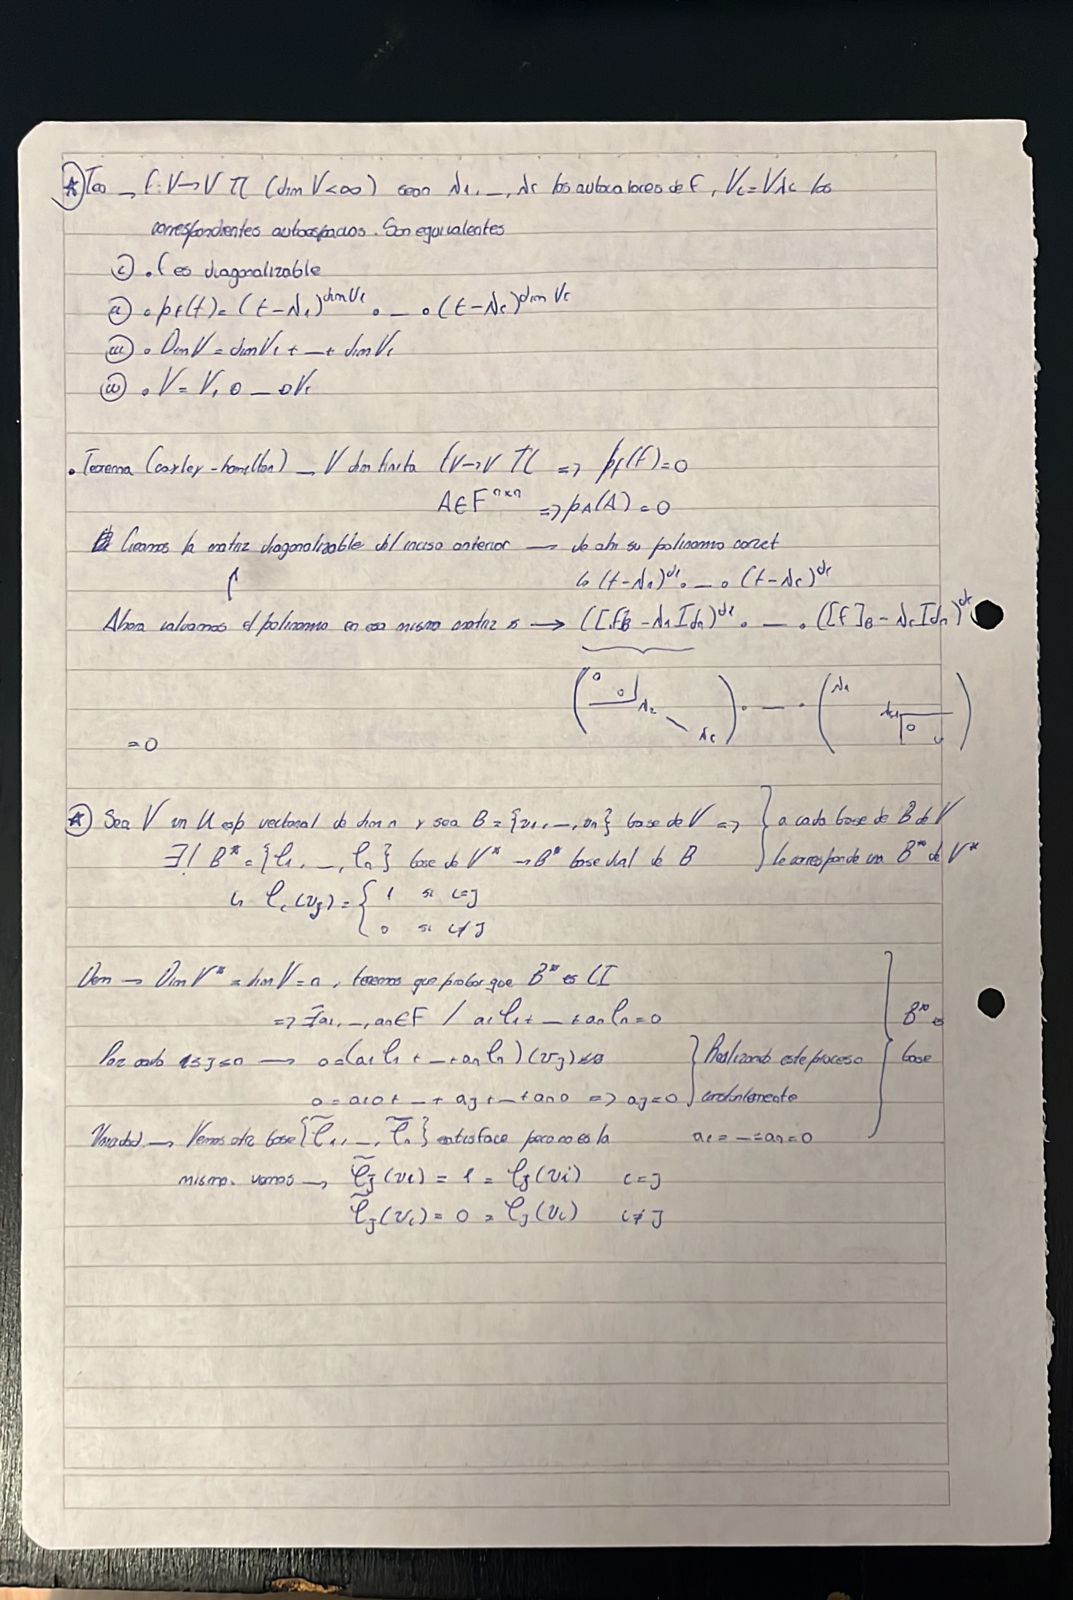 Teo → f: V→V TL (dim V<∞) sean λ1, _, λr los autovalores de f, Vi = Vλi los
correspondientes autoespacios. Son equivalentes
i) . f es diagonalizable
ii) . pf(t) = (t-λ1)^dimV1 . _ . (t-λr)^dim Vr
iii) . Dim V = dim V1 + _ + dim Vr
iv) . V = V1 ⊕ _ ⊕ Vr
. Teorema (cayley-hamilton) _ V dim finita f V→V TL => pf(f) = 0
A∈F^nxn => pA(A) = 0
Creamos la matriz diagonalizable del inciso anterior → de ahi su polinomio caract
↳ (t-λ1)^d1 . _ . (t-λr)^dr
Ahora valuamos el polinomio en esa misma matriz → ([f]B - λ1 Idn)^d1 . _ . ([f]B - λr Idn)^dr
( 0 0 λ2 λr ) . _ . ( λ1 λr-1 0 0 )
= 0
Sea V un K esp vectorial de dim n y sea B = {v1, _, vn} base de V => } a cada base de B de V
∃! B* = {φ1, _, φn} base de V* → B* base dual de B } le corresponde una B* de V*
↳ φi(vj) = { 1 si i=j
0 si i≠j
Dem → Dim V* = dim V = n, tenemos que probar que B* es LI
=> ∃ a1, _, an ∈ F / a1 φ1 + _ + an φn = 0 } B* es
Por cada 1≤j≤n → 0 = (a1 φ1 + _ + an φn)(vj) } Realizando este proceso } base
0 = a1 0 + _ + aj + _ + an 0 => aj = 0
a1 = _ = an = 0
→ Vemos otra base {φ̃1, _, φ̃n} satisface pero no es la
mismo. vamos → φ̃j(vi) = 1 = φj(vi) i=j
φ̃j(vi) = 0 = φj(vi) i≠j